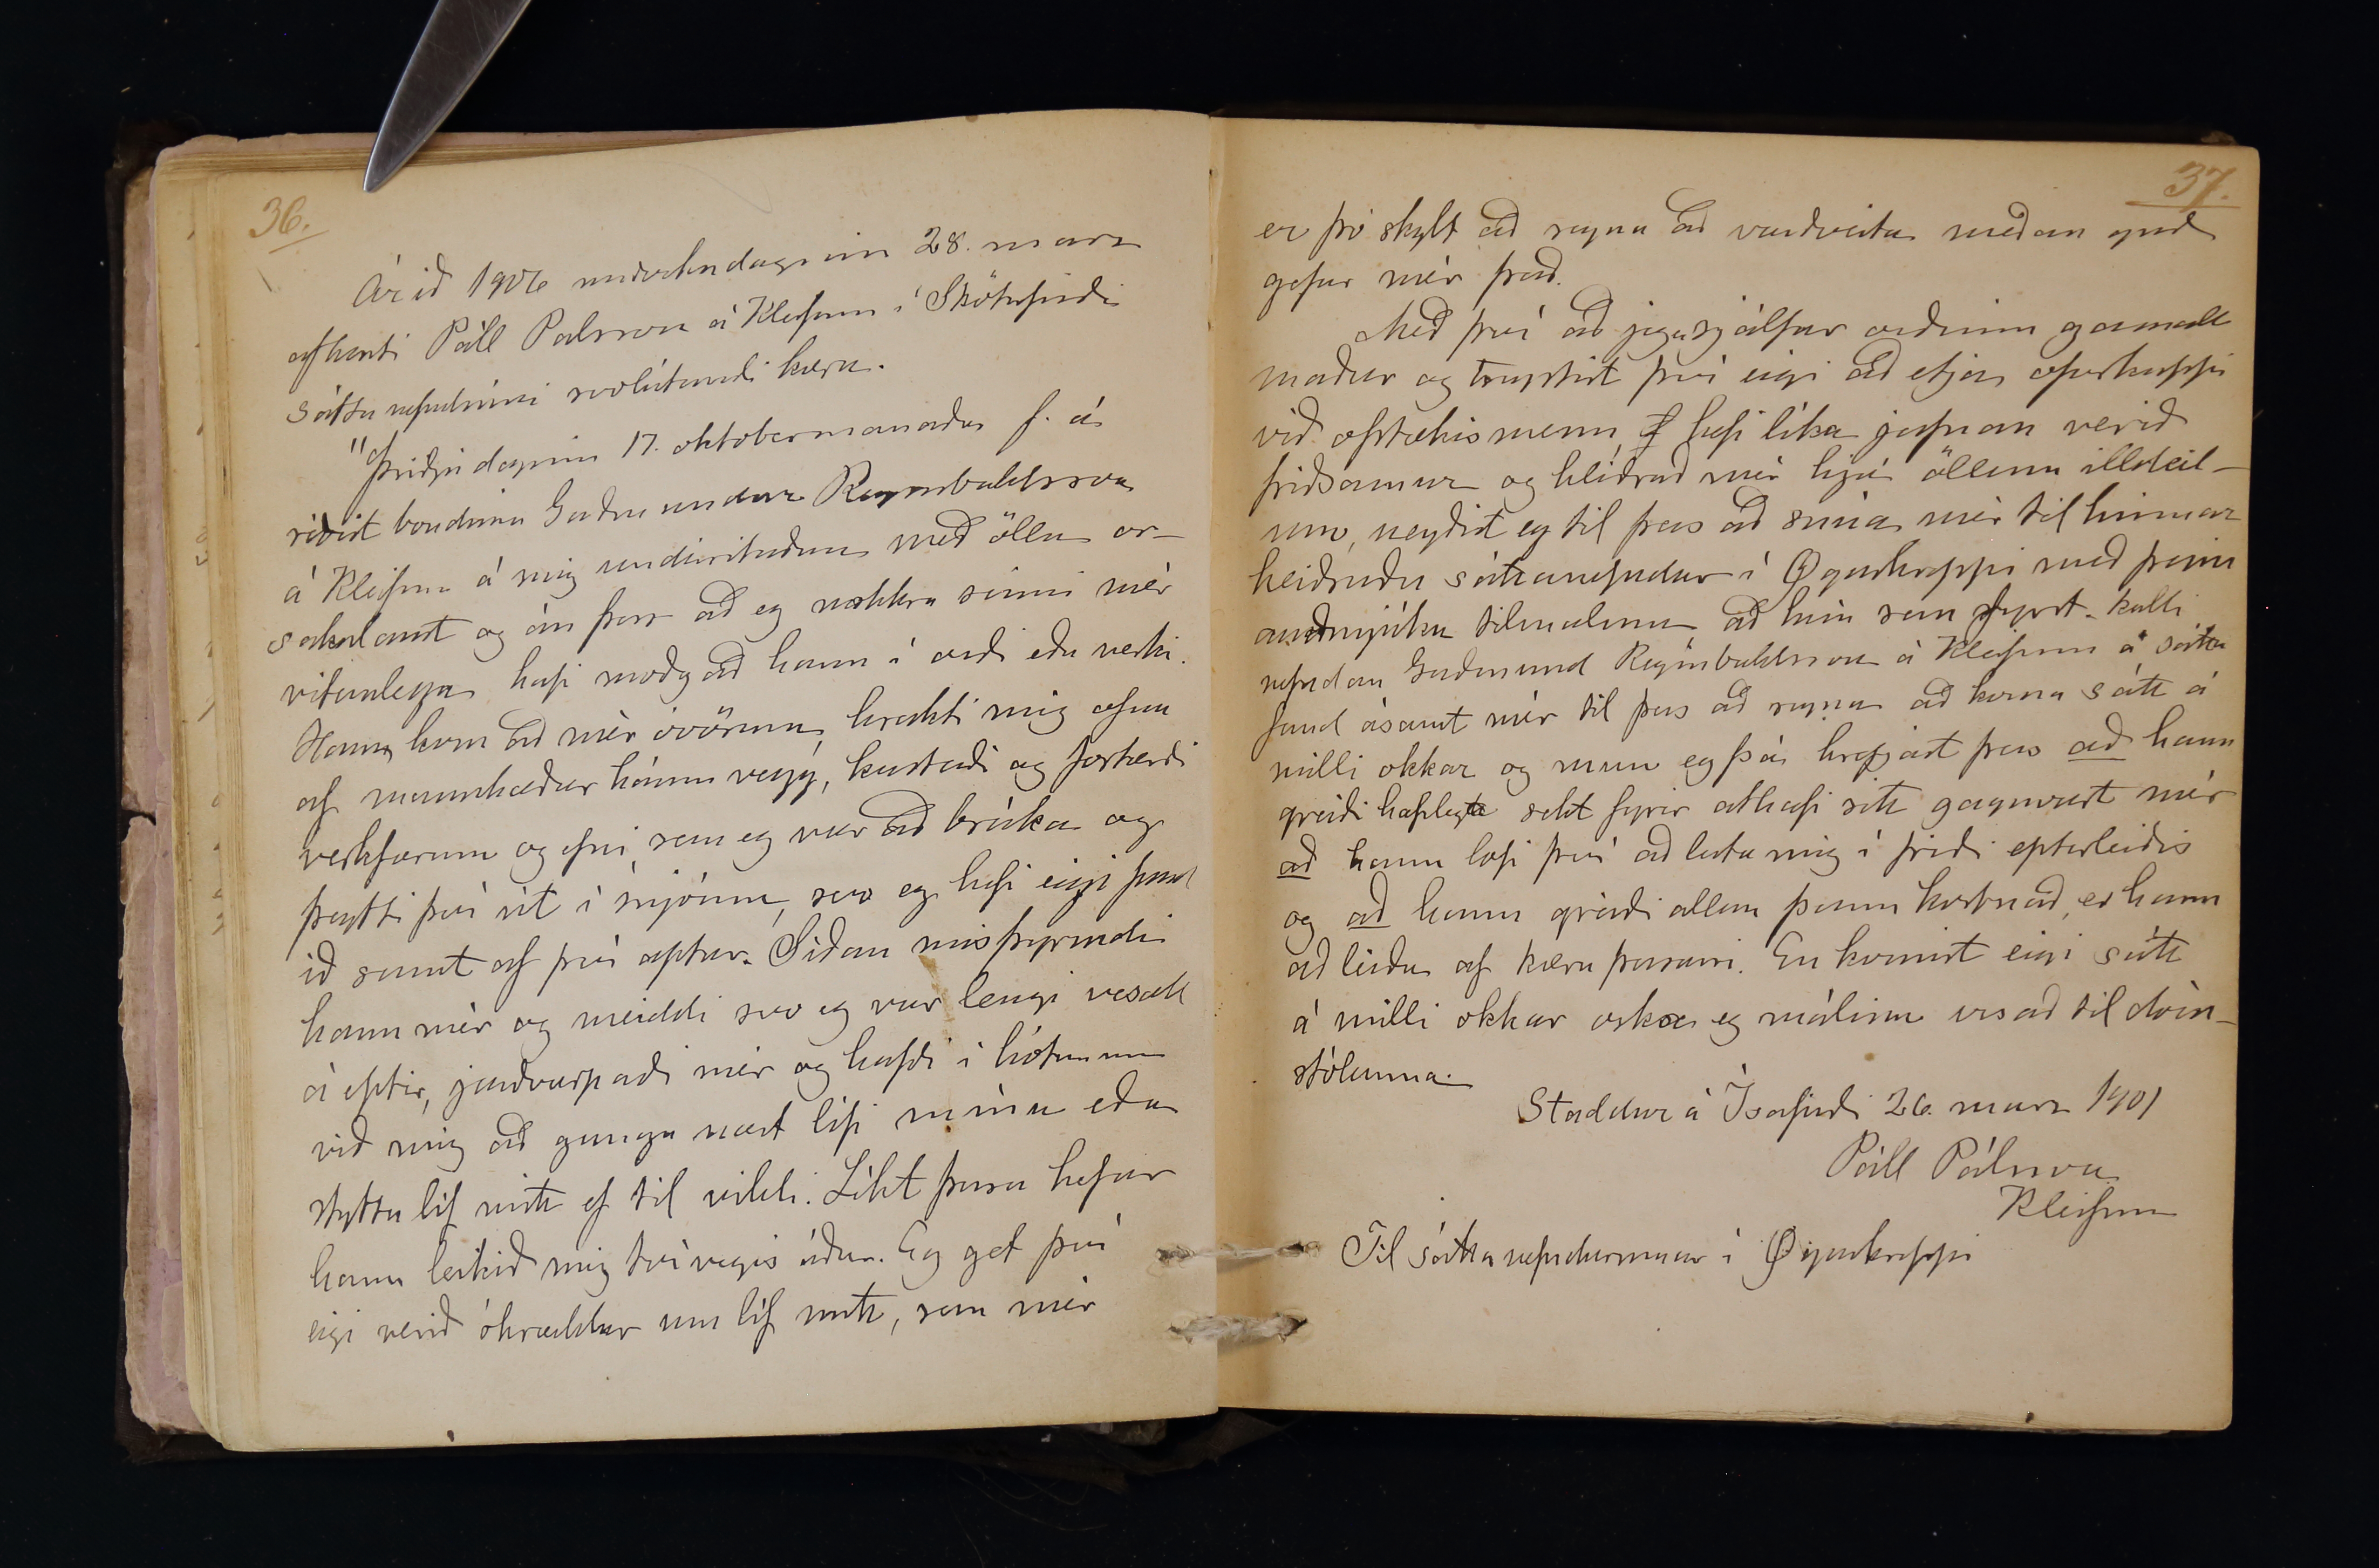 36.
Árið 1906 miðvikudaginn 28. mars
afhenti Páll Pálsson á Kleifum í Skötufirði
sáttanefndinni svolátandi kæru.
"Þriðjudaginn 17. oktobermanaðar f. á.
réðist bóndinn Guðmundur Reginbaldsson
á Kleifum á mig undirritaðan með öllu or-
sakalaust og án þess að eg nokkru sinni mér
vitanlega hafi móðgað hann í orði eða verki.
Hann kom að mér óvörum, hrakti mig ofan
af mannhæðar háum vegg, kastaði og forherði
verkfærum og efni sem eg var að brúka og
þeytti því út í snjóinn, svo eg hefi eigi fund
ið sumt af því aptur. Síðan misþyrmdi
hann mér og meiddi svo eg var lengi vesall
á eptir, jarðvarpaði mér og hafði í hótunum
við mig að ganga næst lífi mínu eða
stytta líf mitt ef til vildi. Líkt þessu hefur
hann leikið mig tvívegis áður. Eg get því
eigi verið óhræddur um líf mitt, sem mér
37.
er þó skylt að reyna að varðveita meðan guð
gefur mér það.
Með því að jeg sjálfur orðinn gamall
maður og treystist því eigi að etja ofurkappi
við ofstækismenn, hefi líka jafnan verið
friðsamur og hliðrað mér hjá öllum illdeil-
um, neyðist eg til þess að snúa mér til hinnar
heiðruðu sáttanefndar í Øgurhreppi með þeim
auðmjúku tilmælum, að hún sem fyrst kalli
nefndan Guðmund Reginbaldsson á Kleifum á sátta
fund ásamt mér til þess að reyna að koma sátt á
milli okkar og mun eg þá krefjast þess að hann
greiði hæfilega sekt fyrir athæfi sitt gagnvart mér
að hann lofi því að láta mig í friði eptirleiðis
og að hann greiði allan þann kostnað, er hann
að leiða af kæru þessari. En komist eigi sátt
á milli okkar óska eg málinu vísað til dóm-
stólanna.
Staddur á Ísafirði 26. mars 1901
Páll Pálsson
Kleifum
Til sáttanefndarinnar í Øgurhreppi